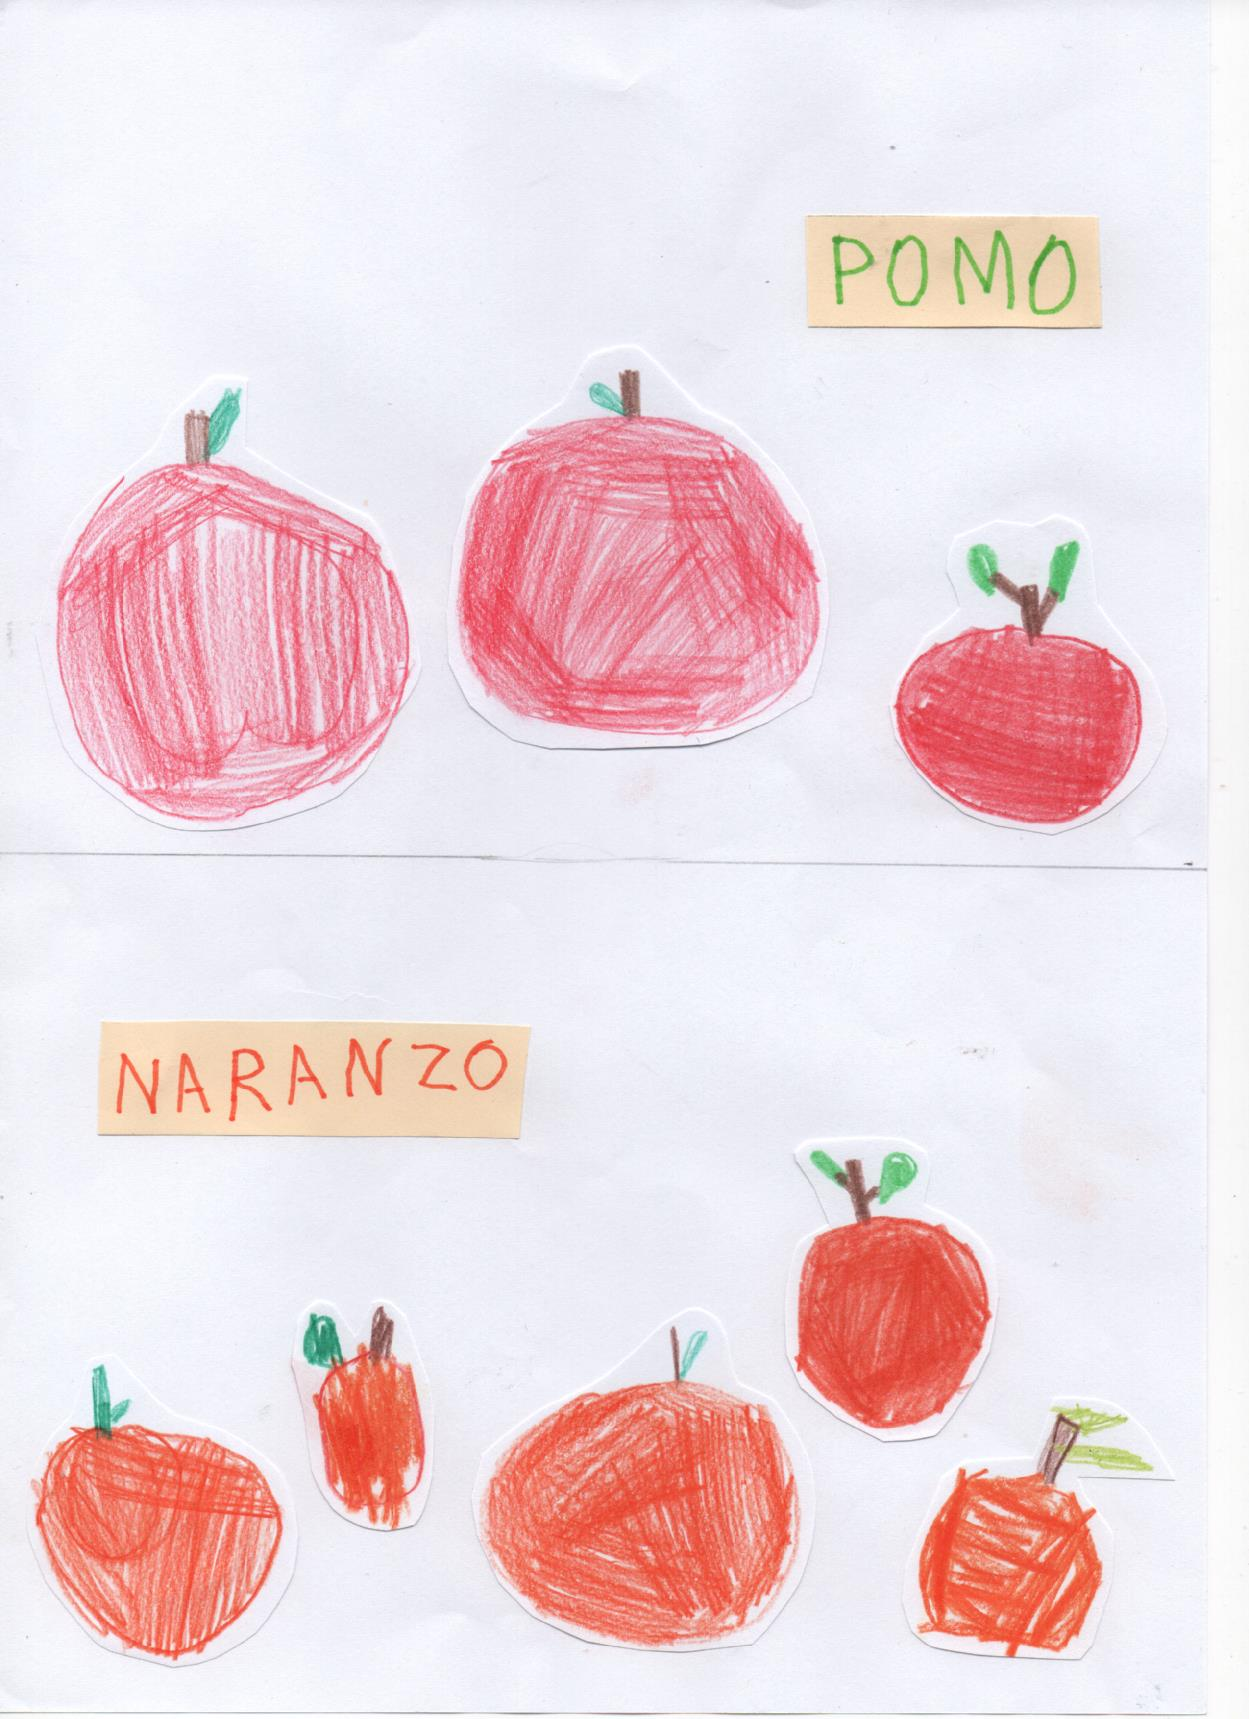 POMO
NARANZO